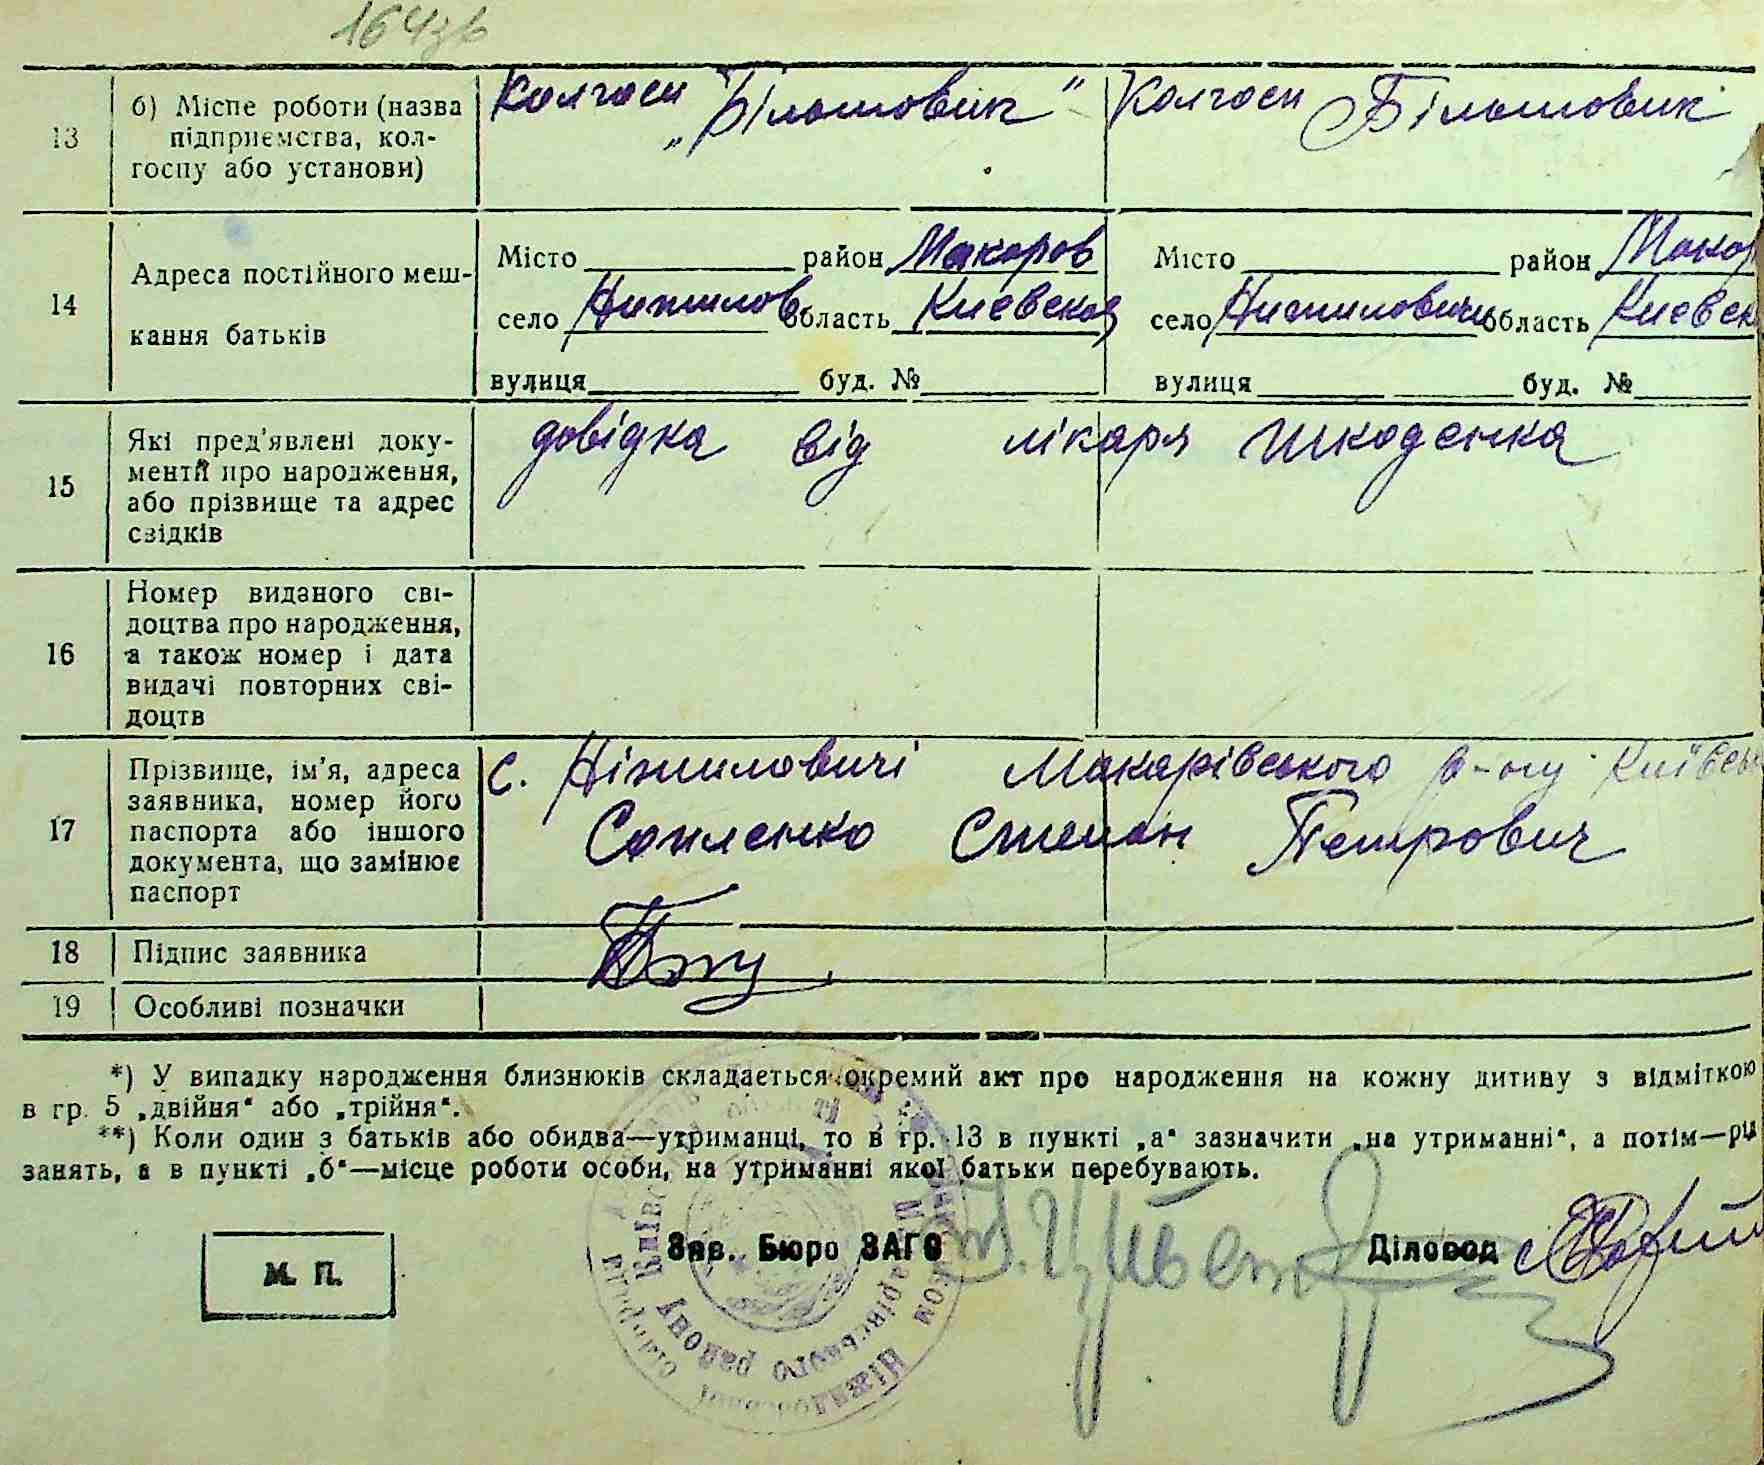 164зв
13
б) Місце роботи (назва
підприємства, кол-
госпу або установи)
Колгосп „Більшовик"
Колгосп Більшовик
14
Адреса постійного меш-
кання батьків
Місто район Макаров
село Нижилов область Киевская
вулиця буд. №
Місто район Макар
село Нижиловичи область Киевск
вулиця буд. №
15
Які пред'явлені доку-
менти про народження,
або прізвище та адрес
свідків
довідка від лікаря Шкоденка
16
Номер виданого сві-
доцтва про народження,
а також номер і дата
видачі повторних сві-
доцтв
17
Прізвище, ім'я, адреса
заявника, номер його
паспорта або іншого
документа, що замінює
паспорт
с. Ніжиловичі Макарівського р-ну Київсь
Сопленко Степан Петрович
18
Підпис заявника
19
Особливі позначки
*) У випадку народження близнюків складається окремий акт про народження на кожну дитину з відміткою
в гр. 5 „двійня" або „трійня".
**) Коли один з батьків або обидва—утриманці, то в гр. 13 в пункті „а" зазначити „на утриманні", а потім—рід
занять, а в пункті „б"—місце роботи особи, на утриманні якої батьки перебувають.
М. П.
Зав. Бюро ЗАГС
Діловод
Макарівського району